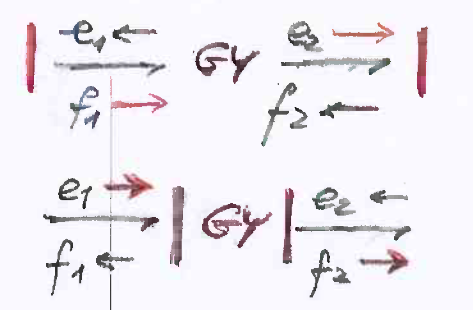 e₁ GY e₂
f₁ f₂
e₁ GY e₂
f₁ f₂